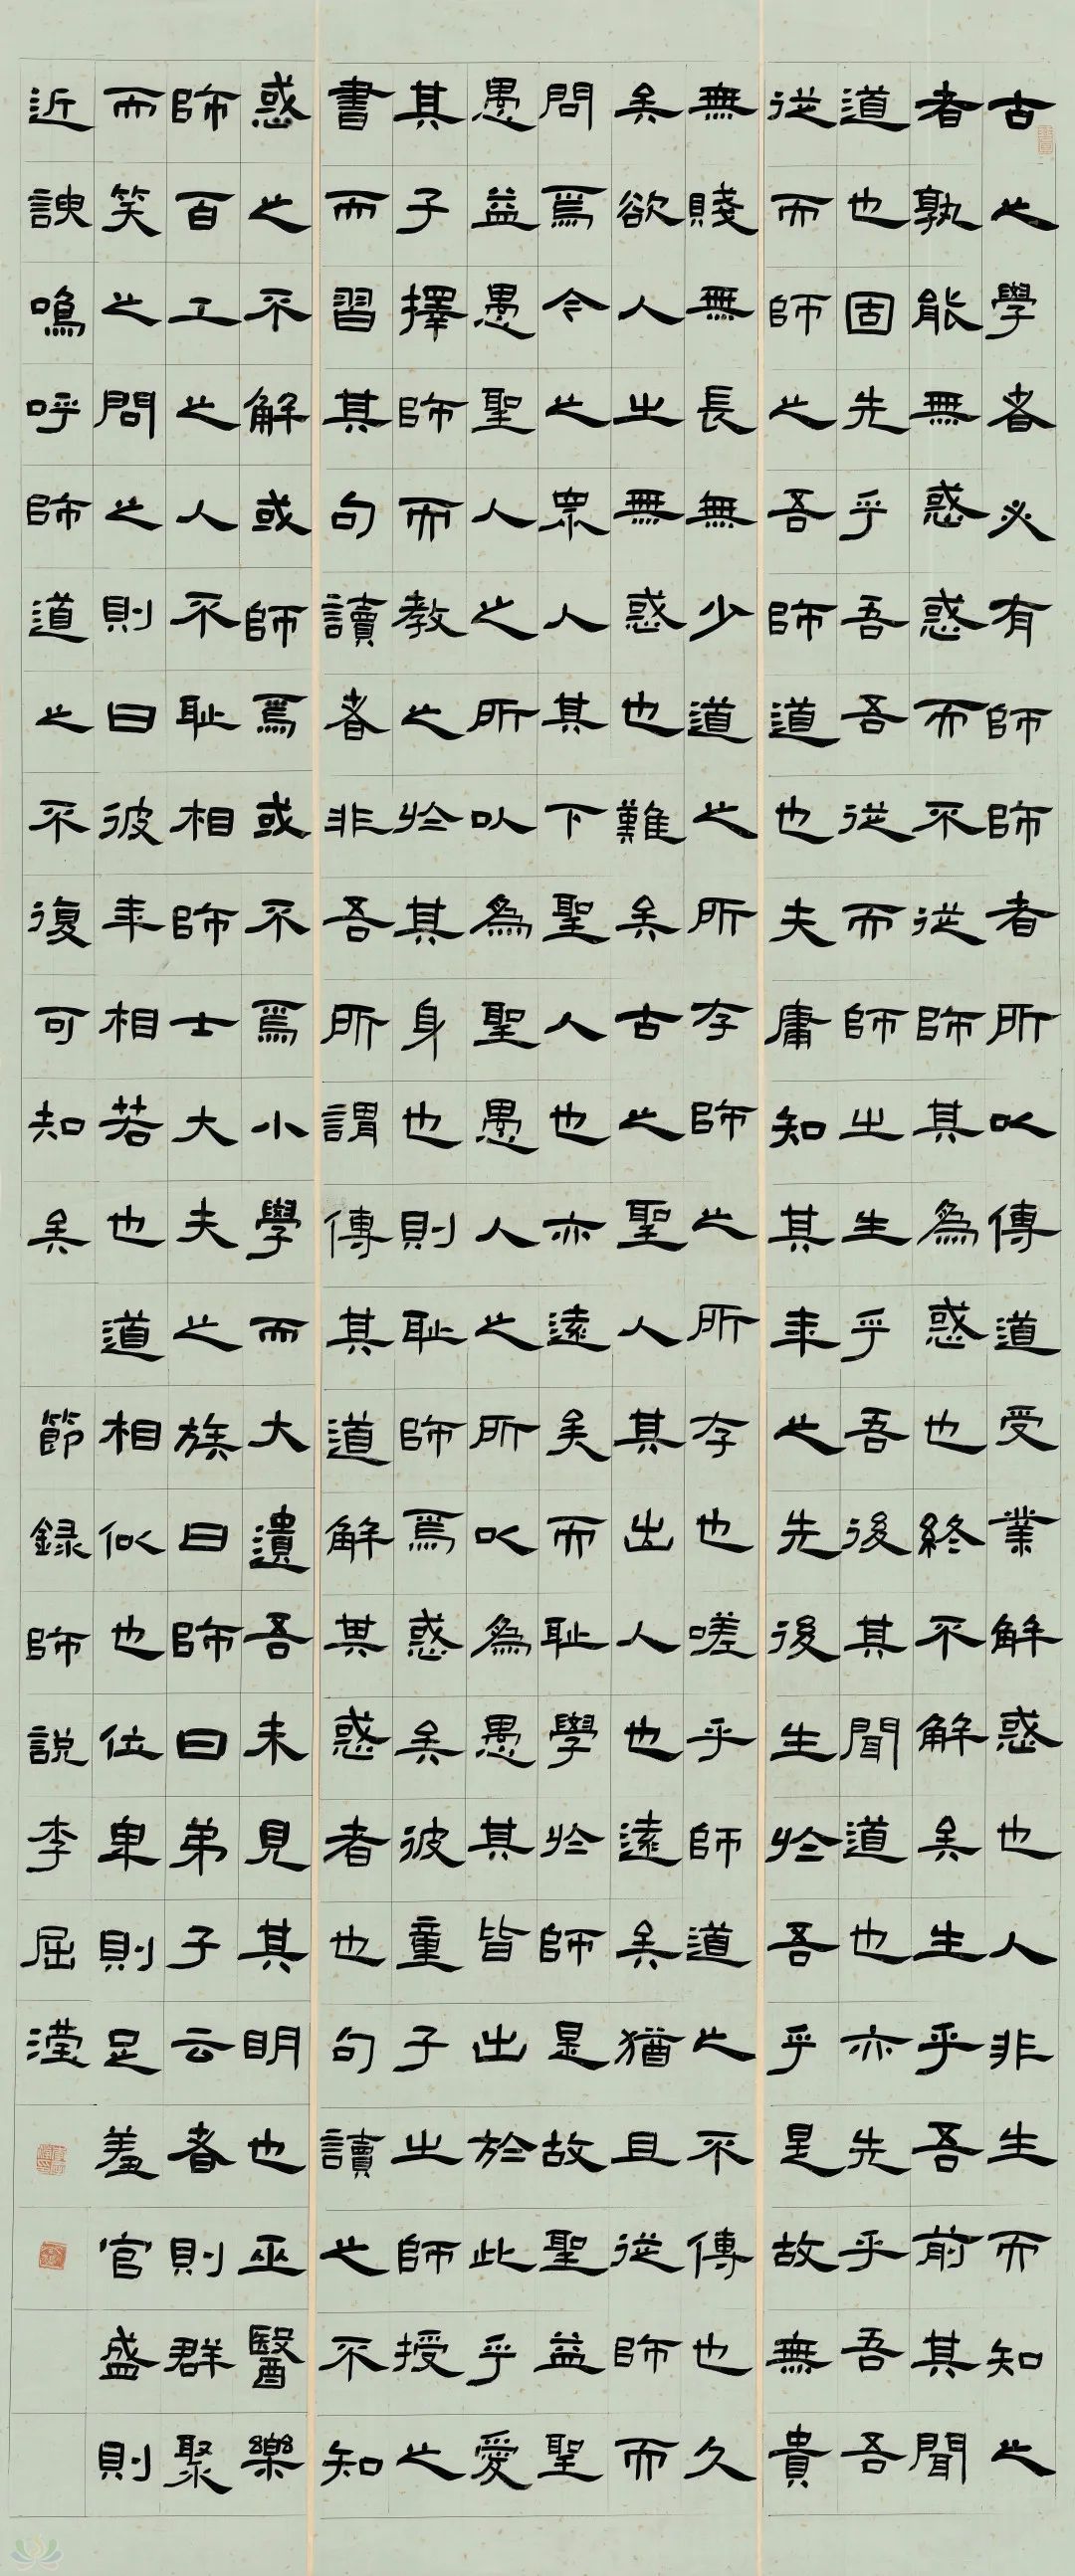 古之學者必有師師者所以傳道受業解惑也人非生而知之
者孰能無惑惑而不從師其為惑也終不解矣生乎吾前其聞
道也固先乎吾吾從而師之生乎吾後其聞道也亦先乎吾吾
從而師之吾師道也夫庸知其年之先後生於吾乎是故無貴
無賤無長無少道之所存師之所存也嗟乎師道之不傳也久
矣欲人之無惑也難矣古之聖人其出人也遠矣猶且從師而
問焉今之眾人其下聖人也亦遠矣而耻學於師是故聖益聖
愚益愚聖人之所以為聖愚人之所以為愚其皆出於此乎愛
其子擇師而教之於其身也則耻師焉惑矣彼童子之師授之
書而習其句讀者非吾所謂傳其道解其惑者也句讀之不知
惑之不解或師焉或不焉小學而大遺吾未見其明也巫醫樂
師百工之人不耻相師士大夫之族曰師曰弟子云者則群聚
而笑之問之則曰彼年相若也道相似也位卑則足羞官盛則
近諛嗚呼師道之不復可知矣 節録師説李屈滢